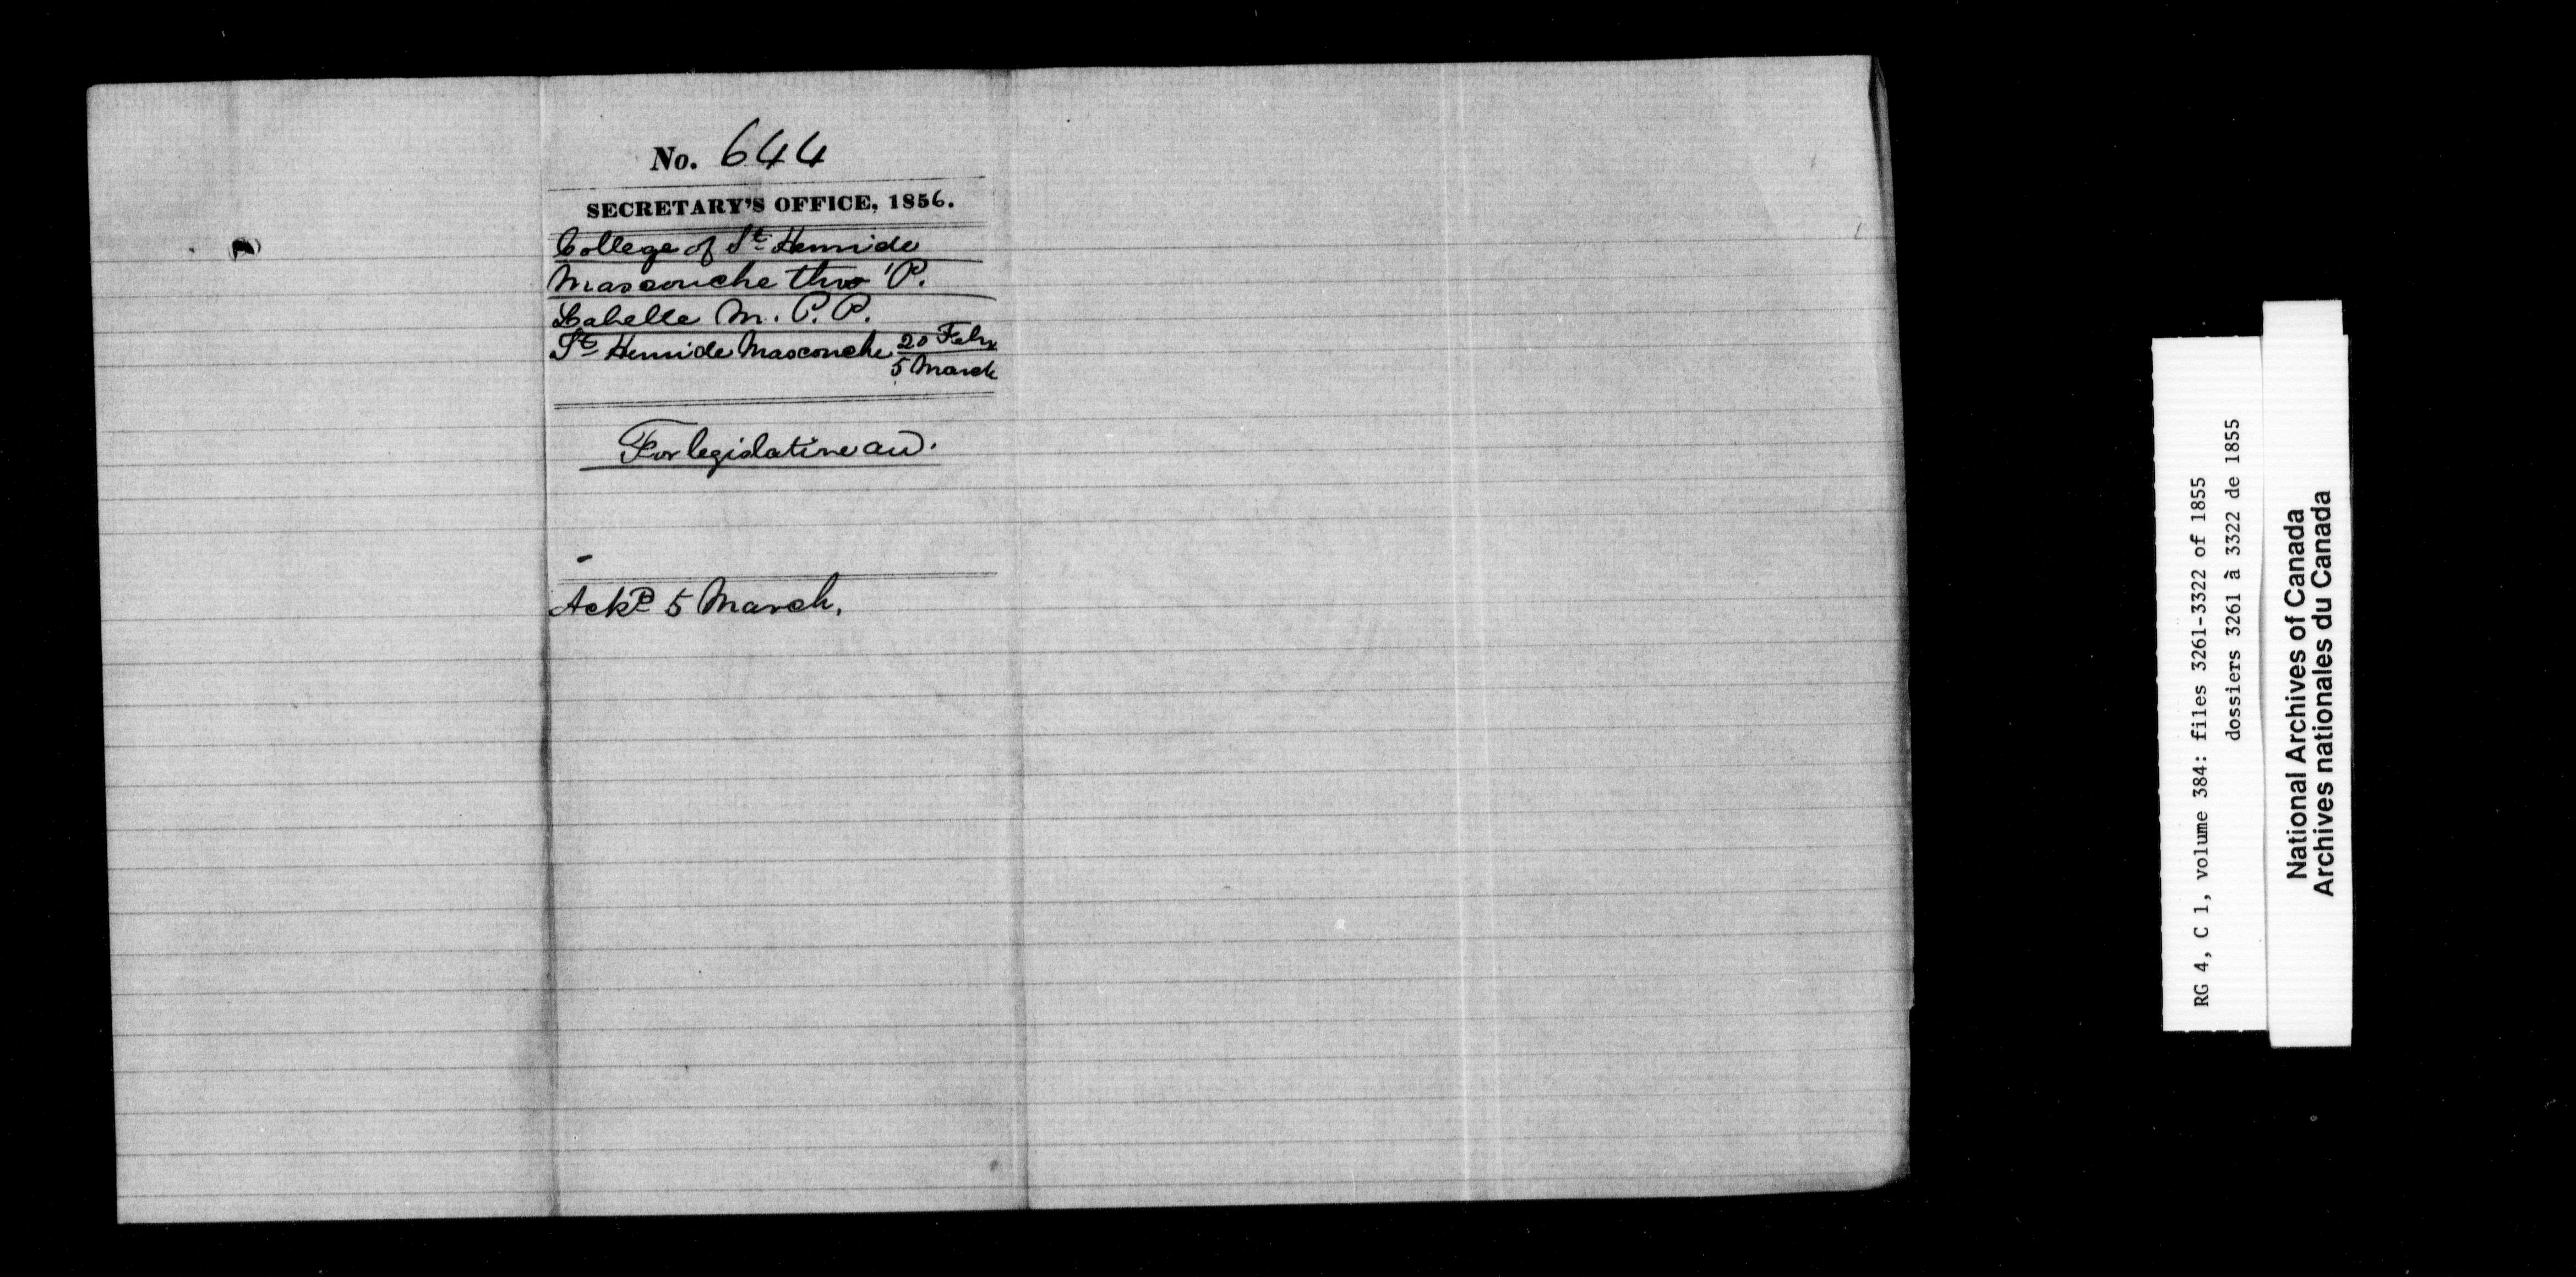 No. 644
SECRETARY'S OFFICE, 1856.
College of St Henri de
Mascouche thro' P.
Labelle M. P. P.
St Henri de Mascouche 20 Feby
5 March
For legislative aid.
Ackd 5 March.
RG 4, C 1, volume 384: files 3261-3322 of 1855
dossiers 3261 à 3322 de 1855
National Archives of Canada
Archives nationales du Canada